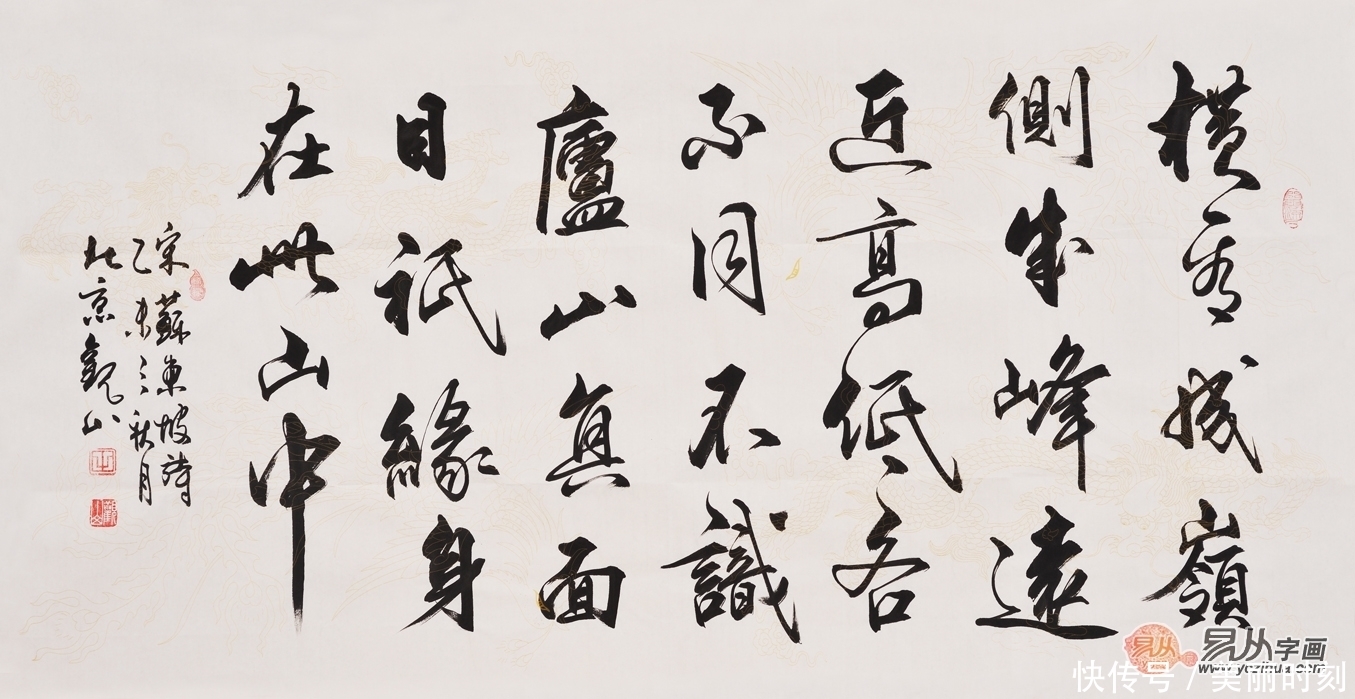 橫看成嶺
側成峰遠
近高低各
不同不識
廬山真面
目祇緣身
在此山中
宋蘇東坡詩
乙未三秋月
北京觀山
易从字画
www.yczihua.com
快传号/美丽时刻